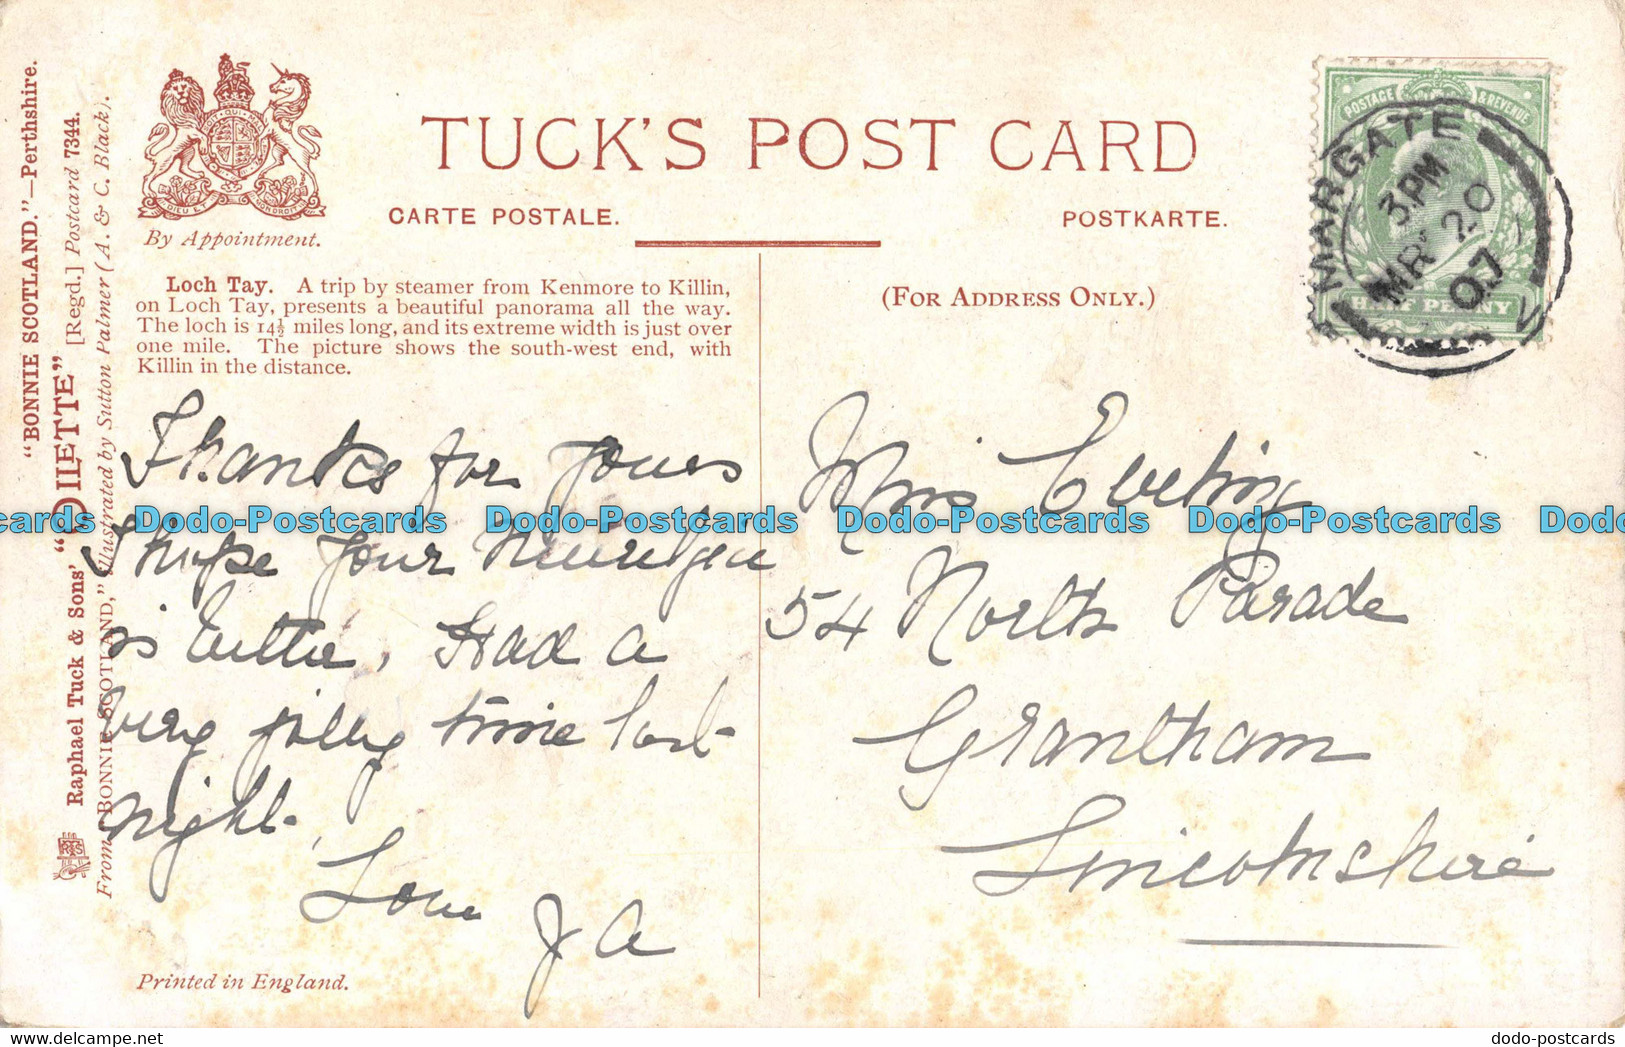 "BONNIE SCOTLAND."—Perthshire.
Raphael Tuck & Sons' "OILETTE" [Regd.] Postcard 7344.
From "BONNIE SCOTLAND," illustrated by Sutton Palmer (A. & C. Black).
DIEU ET MON DROIT
By Appointment.
TUCK'S POST CARD
CARTE POSTALE.
POSTKARTE.
Loch Tay. A trip by steamer from Kenmore to Killin,
on Loch Tay, presents a beautiful panorama all the way.
The loch is 14½ miles long, and its extreme width is just over
one mile. The picture shows the south-west end, with
Killin in the distance.
(FOR ADDRESS ONLY.)
POSTAGE & REVENUE
HALF PENNY
MARGATE
3 PM
MR 20
07
Thanks for yours
I hope your Neuralgia
is better. Had a
very jolly time last
night.
Love
J A
Miss
54 North Parade
Grantham
Lincolnshire
Printed in England.
cards Dodo-Postcards Dodo-Postcards Dodo-Postcards Dodo-Postcards Dodo
dodo-postcards